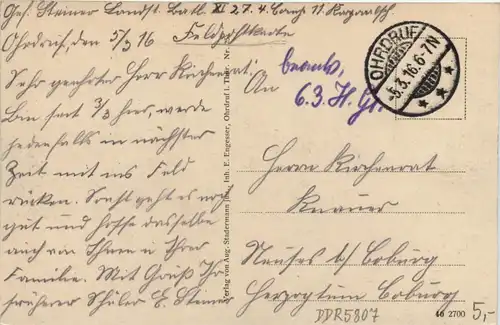 Gef. Steiner Landst. Batl. XI 27. 4. Comp. 11. Korporalsch.
Ohrdruf, den 5/3 16 Feldpostkarte
Sehr geehrter Herr Kirchenrat!
Bin seit 3/3 hier, werde
jedenfalls in nächster
Zeit mit ins Feld
rücken. Sonst geht es noch
gut und hoffe dasselbe
auch von Ihnen u Ihrer
Familie. Mit Gruß Ihr
früherer Schüler E. Steiner
Verlag von Aug. Stadermann jun., Inh. E. Engester, Ohrdruf i. Thür. Nr.
OHRDRUF
-5.3.16.6-7N
beantw.
6.3.
An
Herrn Kirchenrat
Knauer
Neuses b/ Coburg
Herzogtum Coburg
DDR5807
46 2700
5,-